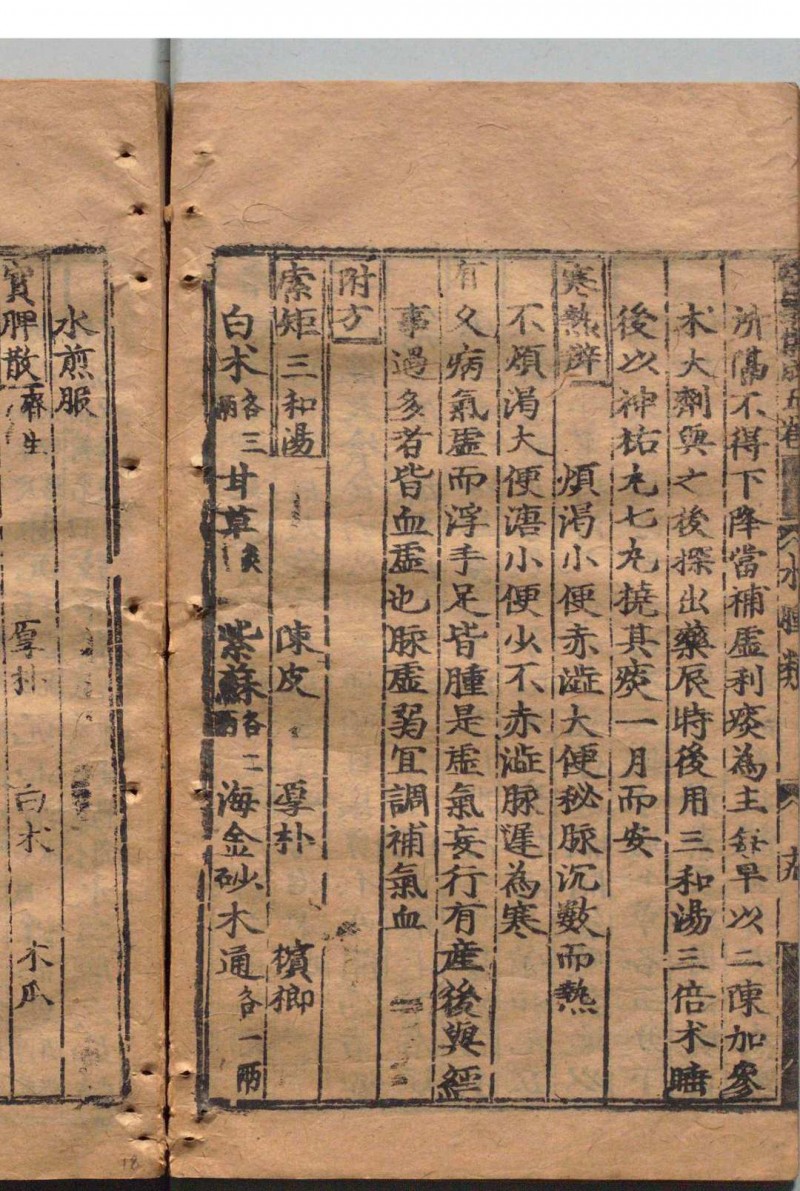 水腫類
所隔不得下降當補虛利痰為主每早以二陳加參
术大劑與之後探出藥辰時後用三和湯三倍术睡
後以神祐丸七丸撓其痰一月而安
寒熱辨 煩渴小便赤澁大便秘脉沉數而熱
不煩渴大便溏小便少不赤澁脉遲為寒
有久病氣虛而浮手足皆腫是虛氣妄行有產後與經
事過多者皆血虛也脉虛弱宜調補氣血
附方
索矩三和湯 陳皮 厚朴 檳榔
白术各三兩 甘草炙 紫蘇各二兩 海金砂 木通各一兩
水煎服
實脾散濟生 厚朴 白术 木瓜